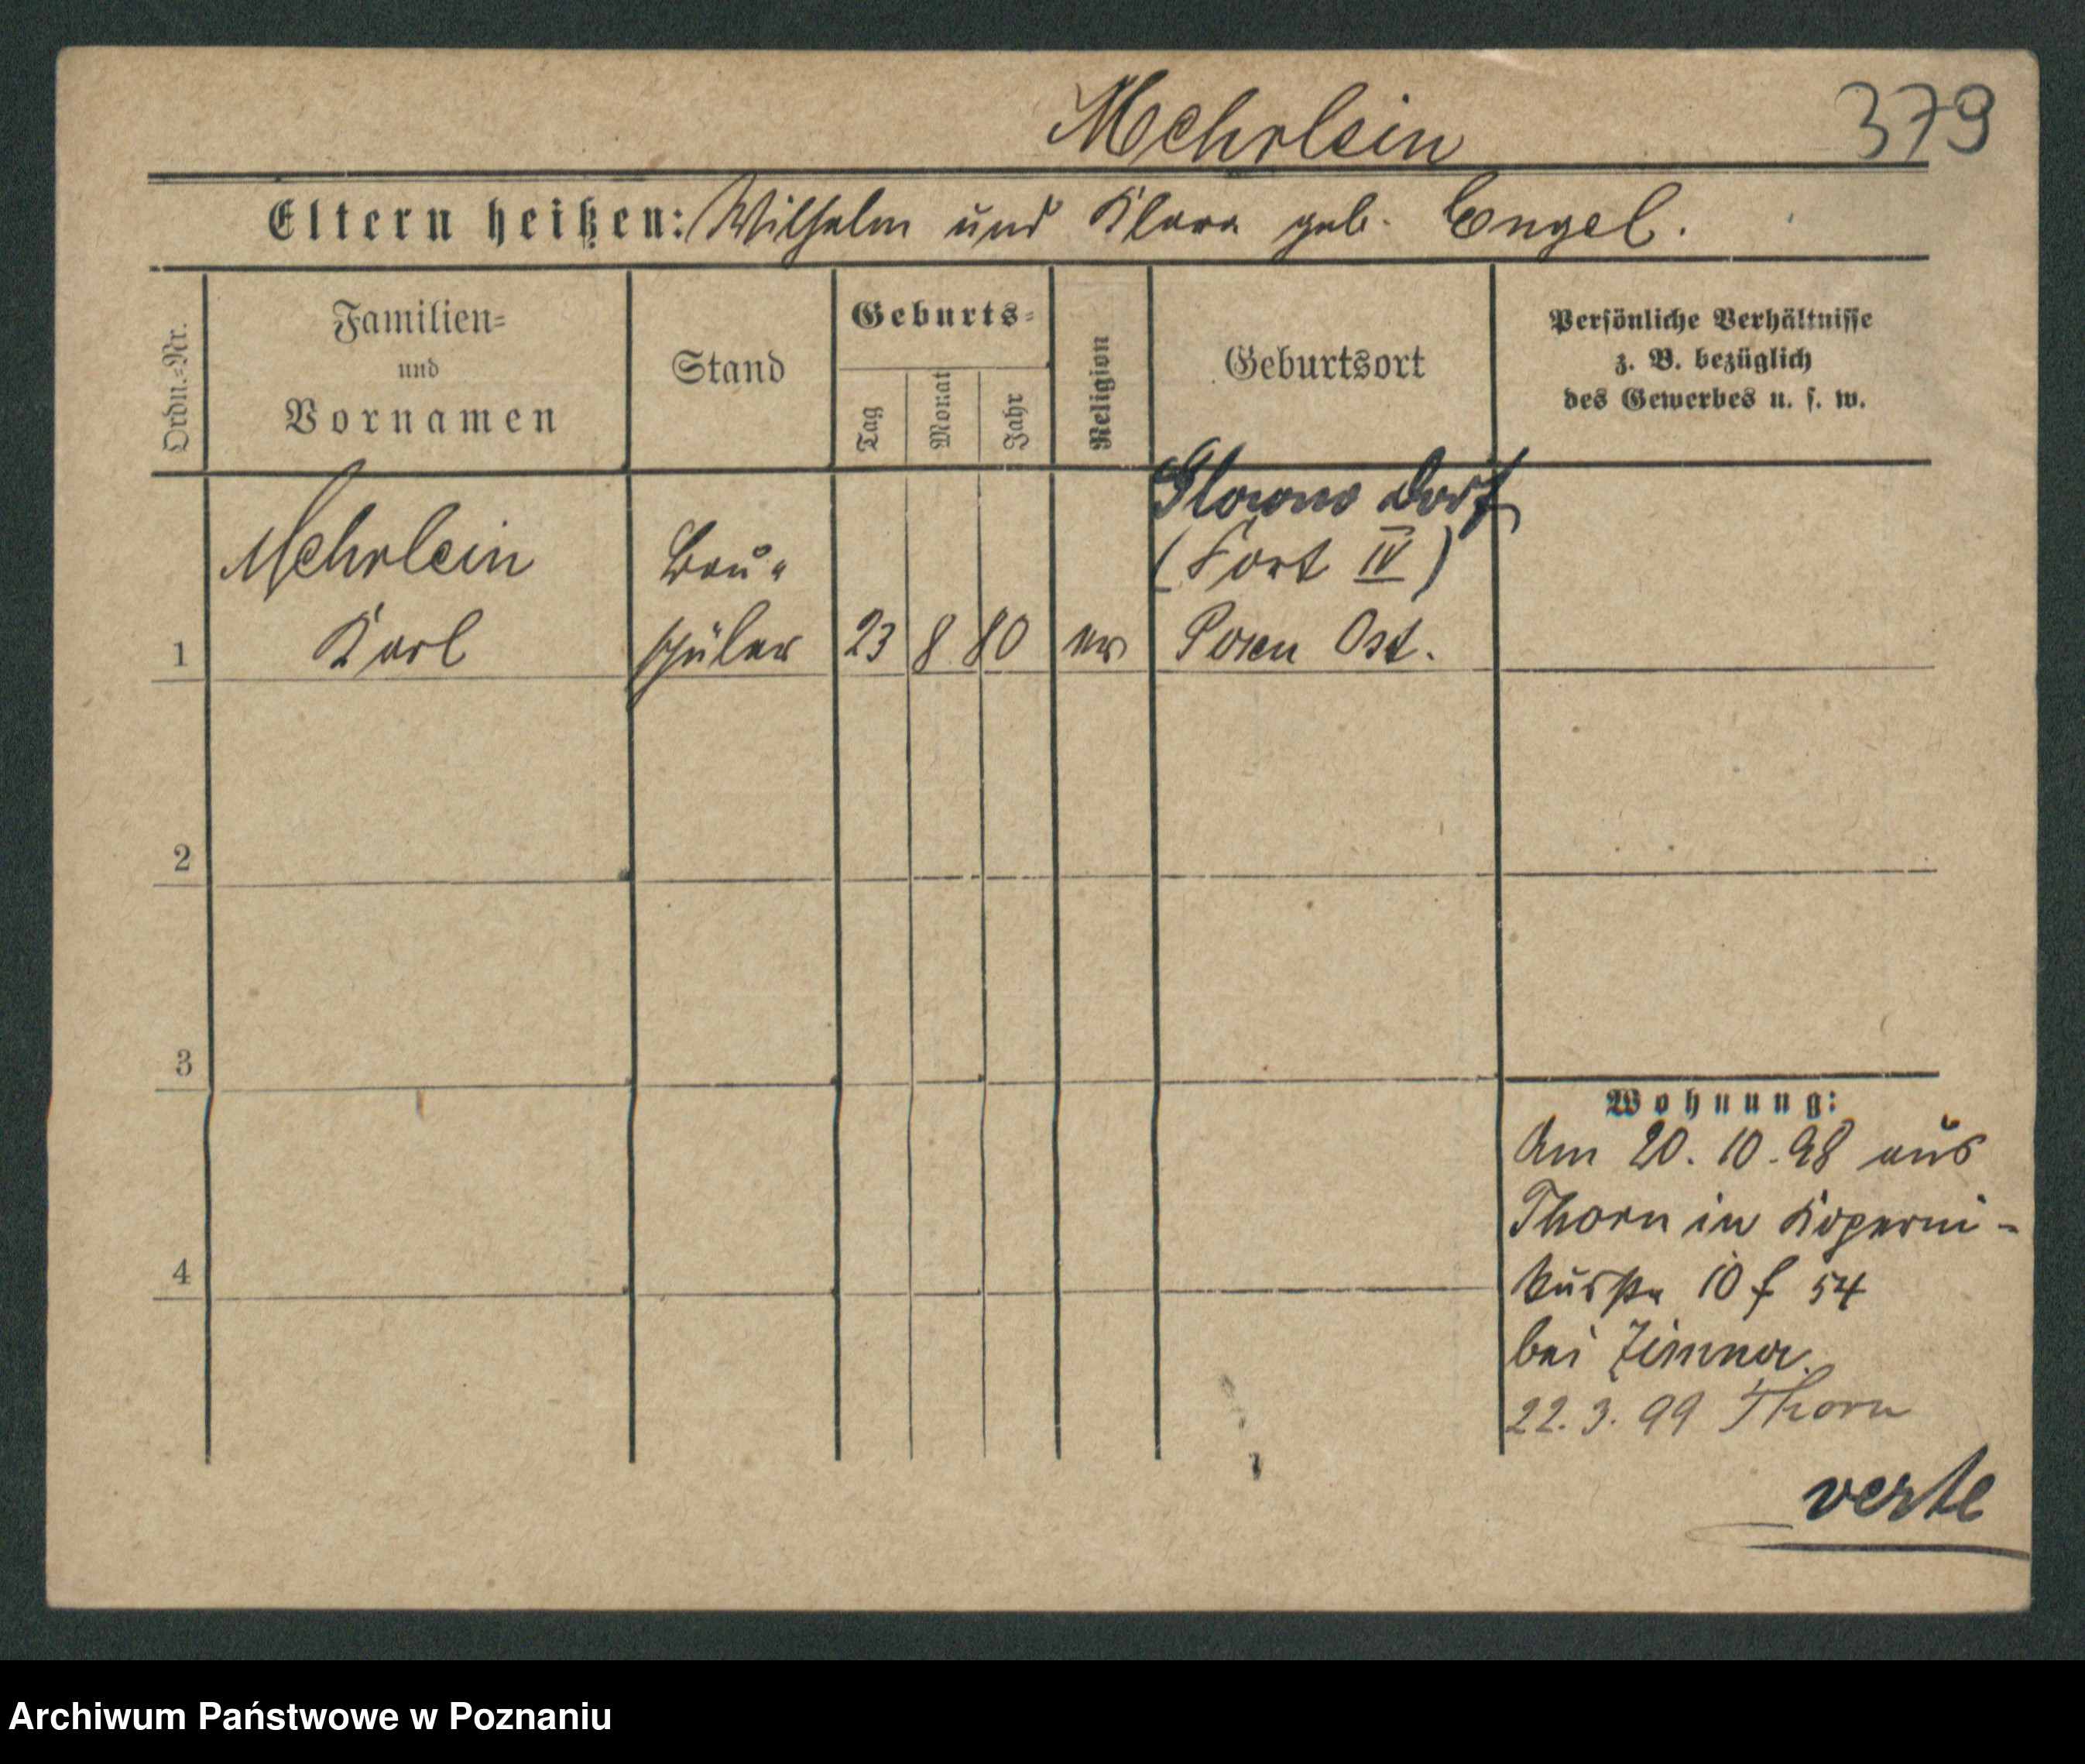 Mehrlein 379
Eltern heißen: Wilhelm und Klara geb. Engel.
Ordn.=Nr.
Familien=
und
Vornamen
Stand
Geburts=
Tag
Monat
Jahr
Religion
Geburtsort
Persönliche Verhältnisse
z. B. bezüglich
des Gewerbes u. s. w.
Glowno Dorf
Mehrlein Bau= (Fort IV)
1 Karl schüler 23 8 80 ev Posen Ost.
2
3
4
Wohnung:
Am 20. 10. 98 aus
Thorn in Koperni-
kusstr 10 f 54
bei
22. 3. 99 Thorn
verte
Archiwum Państwowe w Poznaniu